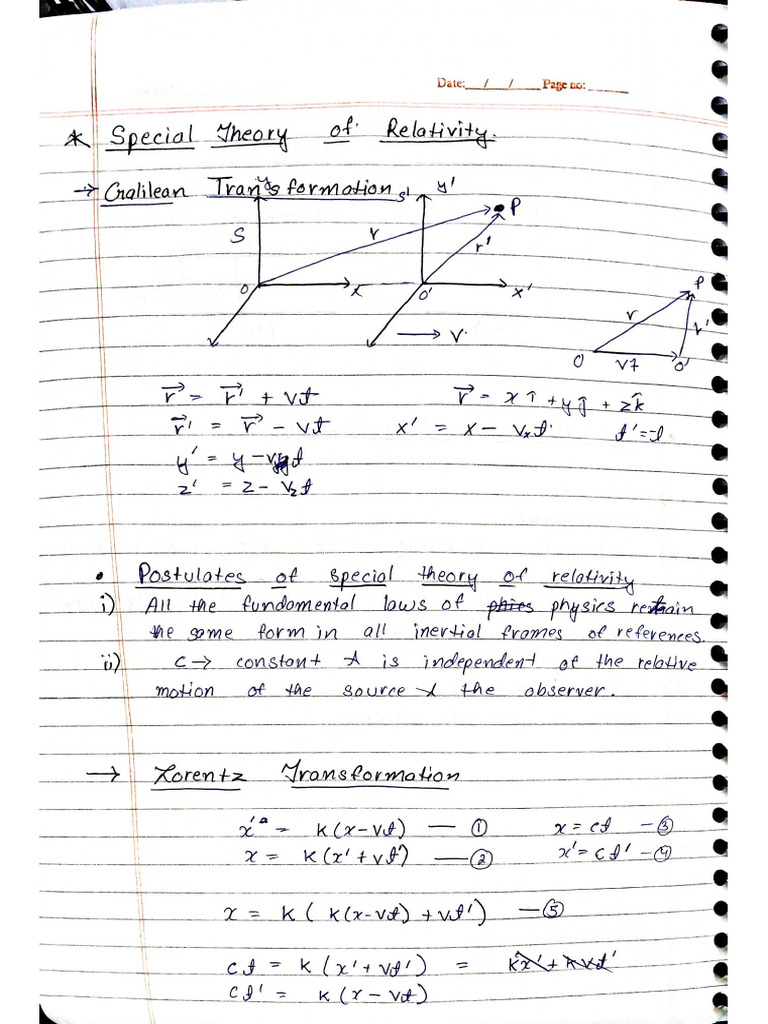 Date: / / Page no:
* Special Theory of Relativity.
→ Galilean Transformation
y S' y'
S r P
r'
O x O' x'
→ V.
P
r r'
O vt O'
r⃗ = r⃗' + vt r⃗ = x î + y ĵ + z k̂
r⃗' = r⃗ - vt x' = x - vₓt. t' = t
y' = y - v_y t
z' = z - v_z t
• Postulates of special theory of relativity
i) All the fundamental laws of physics remain
the same form in all inertial frames of references.
ii) C → constant & is independent of the relative
motion of the source & the observer.
→ Lorentz Transformation
x' = k(x-vt) — ① x = ct — ③
x = k(x' + vt') — ② x' = ct' — ④
x = k( k(x-vt) + vt') — ⑤
ct = k(x' + vt') = kx' + kvt'
ct' = k(x - vt)